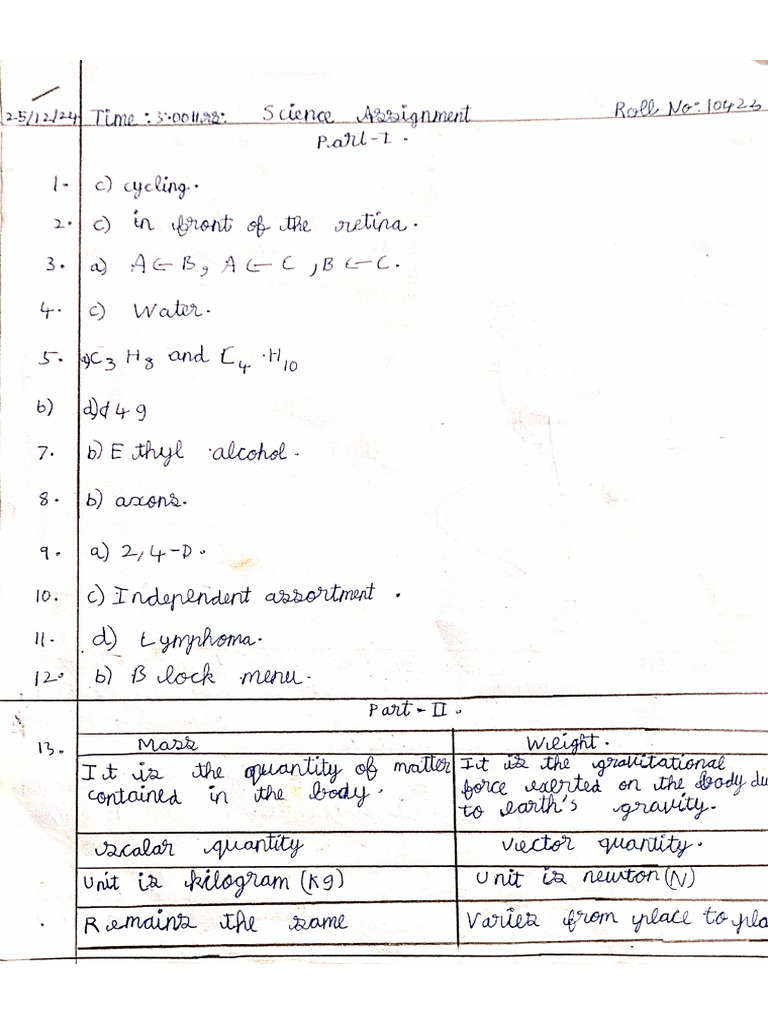 25/12/24 Time: 3.00Hrs: Science Assignment Roll No: 10423
Part-I.
1. c) cycling.
2. c) in front of the retina.
3. a) A ← B, A ← C, B ← C.
4. c) Water.
5. a) C3 H8 and C4 H10
6) d) 49
7. b) Ethyl alcohol.
8. b) axons.
9. a) 2,4-D.
10. c) Independent assortment.
11. d) Lymphoma.
12. b) Block menu.
Part-II.
13. Mass Weight.
It is the quantity of matter It is the gravitational
contained in the body. force exerted on the body du
to earth's gravity.
scalar quantity vector quantity.
Unit is kilogram (kg) Unit is newton (N)
Remains the same Varies from place to pla